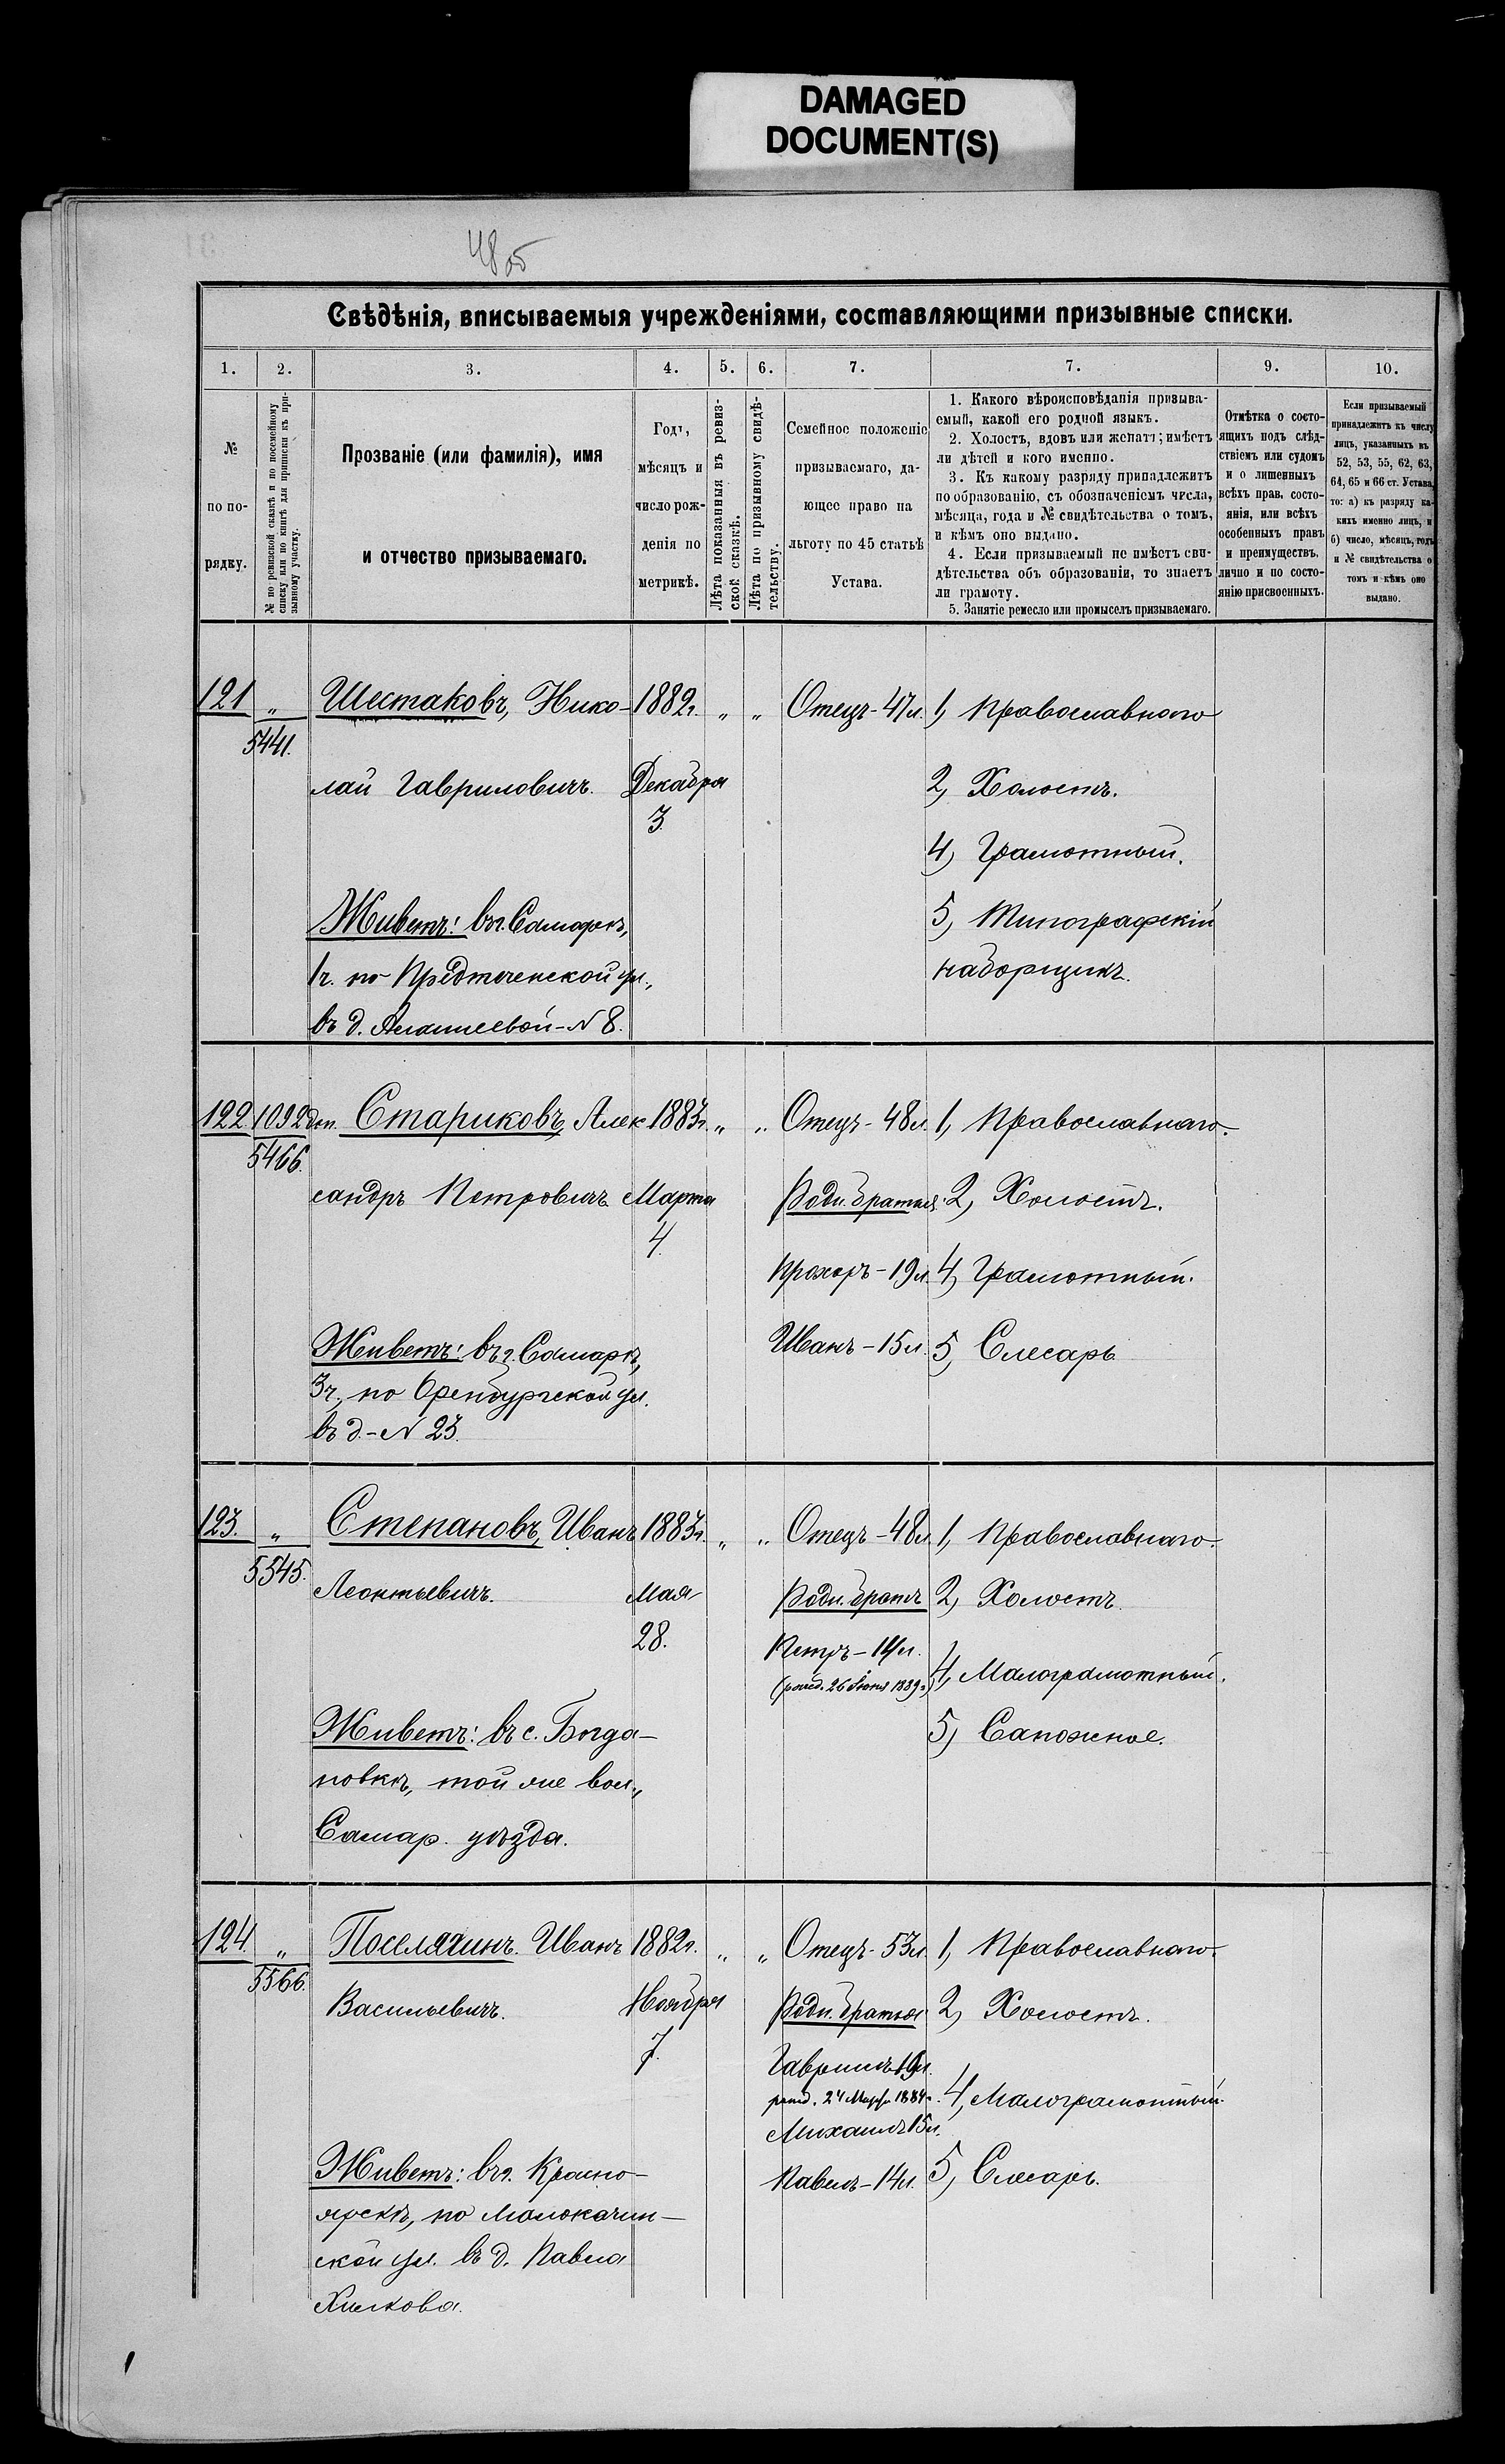 DAMAGED
DOCUMENT(S)
48 об
Свѣдѣнія, вписываемыя учрежденіями, составляющими призывные списки.
1. 2. 3. 4. 5. 6. 7. 7. 9. 10.
№
по по-
рядку.
№ по ревизской сказкѣ и по посемейному
списку или по книгѣ для приписки къ при-
зывному участку.
Прозваніе (или фамилія), имя
и отчество призываемаго.
Годъ,
мѣсяцъ и
число рож-
денія по
метрикѣ.
Лѣта показанныя въ ревиз-
ской сказкѣ.
Лѣта по призывному свидѣ-
тельству.
Семейное положеніе
призываемаго, да-
ющее право на
льготу по 45 статьѣ
Устава.
1. Какого вѣроисповѣданія призыва-
емый, какой его родной языкъ.
2. Холостъ, вдовъ или женатъ; имѣетъ
ли дѣтей и кого именно.
3. Къ какому разряду принадлежитъ
по образованію, съ обозначеніемъ числа,
мѣсяца, года и № свидѣтельства о томъ,
и кѣмъ оно выдано.
4. Если призываемый не имѣетъ сви-
дѣтельства объ образованіи, то знаетъ
ли грамоту.
5. Занятіе ремесло или промыселъ призываемаго.
Отмѣтка о состо-
ящихъ подъ слѣд-
ствіемъ или судомъ
и о лишенныхъ
всѣхъ правъ состо-
янія, или всѣхъ
особенныхъ правъ
и преимуществъ,
лично и по состо-
янію присвоенныхъ.
Если призываемый
принадлежитъ къ числу
лицъ, указанныхъ въ
52, 53, 55, 62, 63,
64, 65 и 66 ст. Устава,
то: а) къ разряду ка-
кихъ именно лицъ, и
б) число, мѣсяцъ, годъ
и № свидѣтельства о
томъ и кѣмъ оно
выдано.
121 „ Шестаковъ, Нико- 1882г. „ „ Отецъ-47л. 1, Православнаго
5441.
лай Гавриловичъ. Декабря 2, Холостъ.
3.
4, Грамотный.
Живетъ: въ г. Самарѣ, 5, Типографскій
1ч. по Предтеченской ул., наборщикъ.
въ д. -N 8.
122 1092 доп. Стариковъ, Алек- 1883г. „ „ Отецъ-48л. 1, Православнаго.
5466.
сандръ Петровичъ Марта Родн. братья: 2, Холостъ.
4.
Прохоръ-19л. 4, Грамотный.
Живетъ: въ г. Самарѣ, Иванъ-15л. 5, Слесарь
3ч., по Оренбургской ул.
въ д.-N 23.
123. „ Степановъ, Иванъ 1883г. „ „ Отецъ-48л. 1, Православнаго.
5545.
Леонтьевичъ. Мая Родн. братъ 2, Холостъ.
28. Петръ-14л.
(рожд. 26 Іюня 1889г.) 4, Малограмотный.
Живетъ: въ с. Богда- 5, Сапожное.
новкѣ, той же вол.,
Самар. уѣзда.
124. „ Поселягинъ. Иванъ 1882г. „ „ Отецъ-53л. 1, Православнаго.
5566.
Васильевичъ. Ноября Родн. братья 2, Холостъ.
7. Гавріилъ 19л.
рожд. 24 Марта 1884г. 4, Малограмотный.
Михаилъ 15л.
Живетъ: въ г. Красно- Павелъ-14л. 5, Слесарь.
ярскѣ, по
ской ул. въ д. Павла
Хилкова.